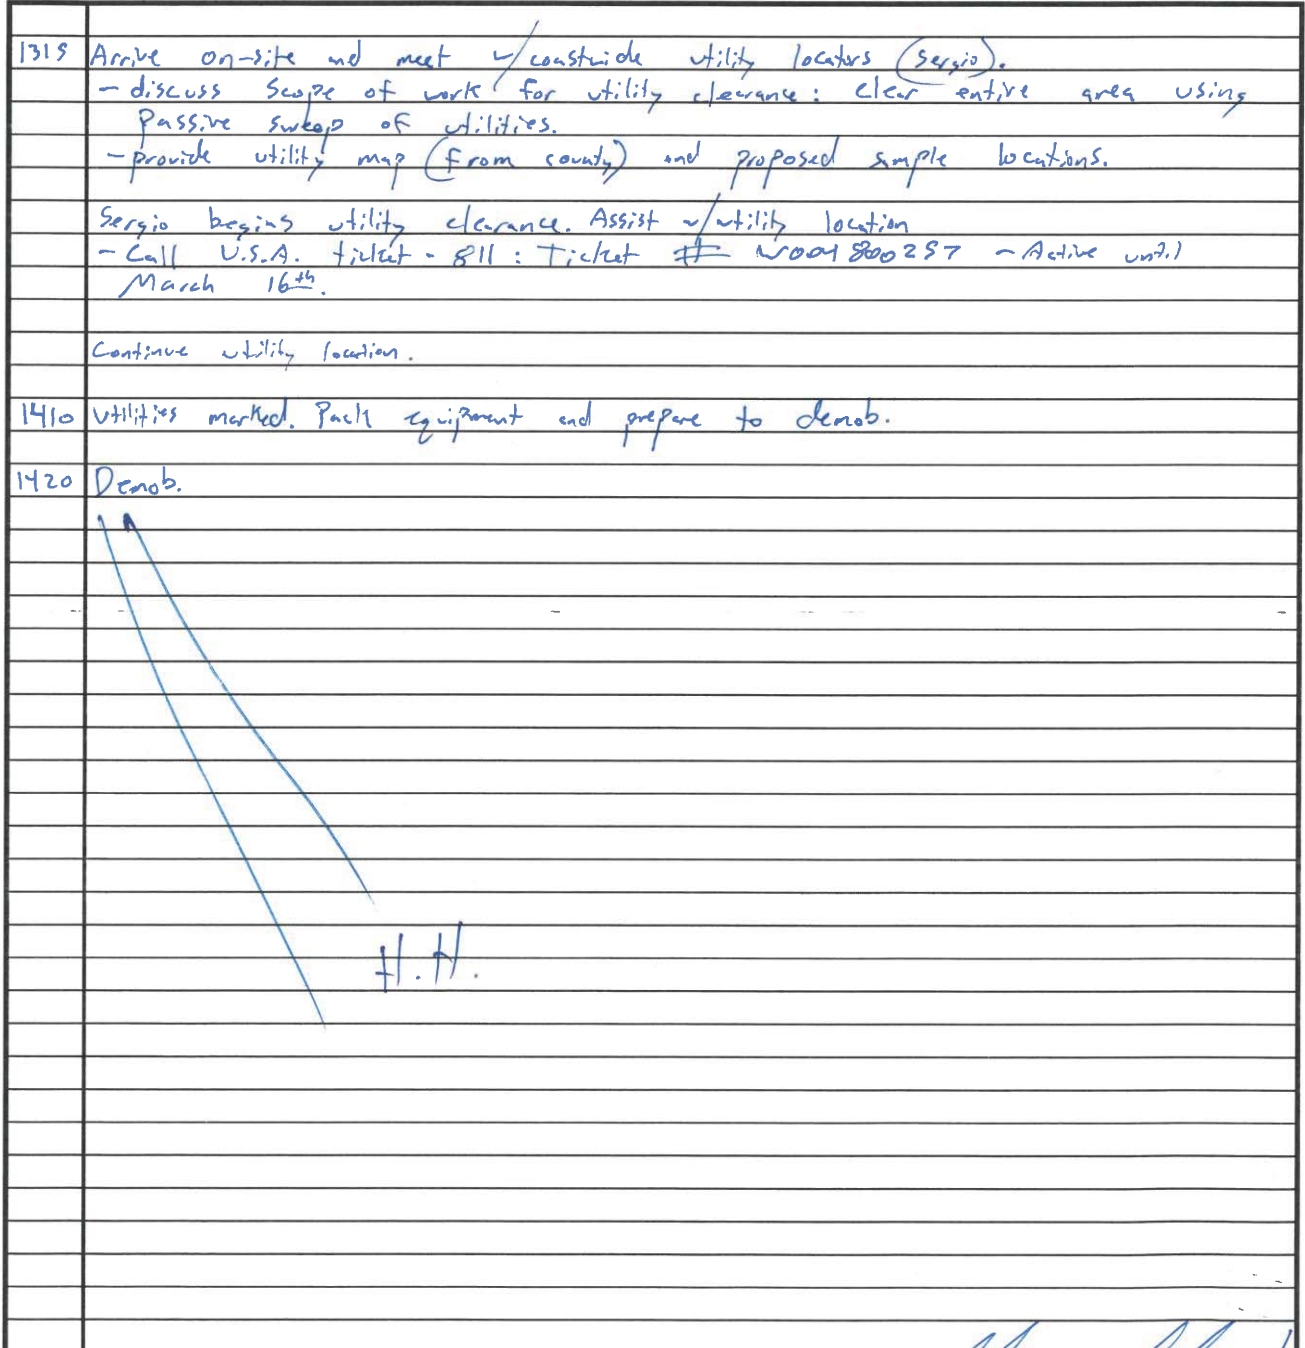 1315 Arrive on-site and meet w/ coastwide utility locators (Sergio).
- discuss scope of work for utility clearance: clear entire area using
passive sweep of utilities.
- provide utility map (from county) and proposed sample locations.
Sergio begins utility clearance. Assist w/ utility location
- Call U.S.A. ticket - 811: Ticket # - Active until
March 16th.
Continue utility location.
1410 Utilities marked. Pack equipment and prepare to demob.
1420 Demob.
H.H.